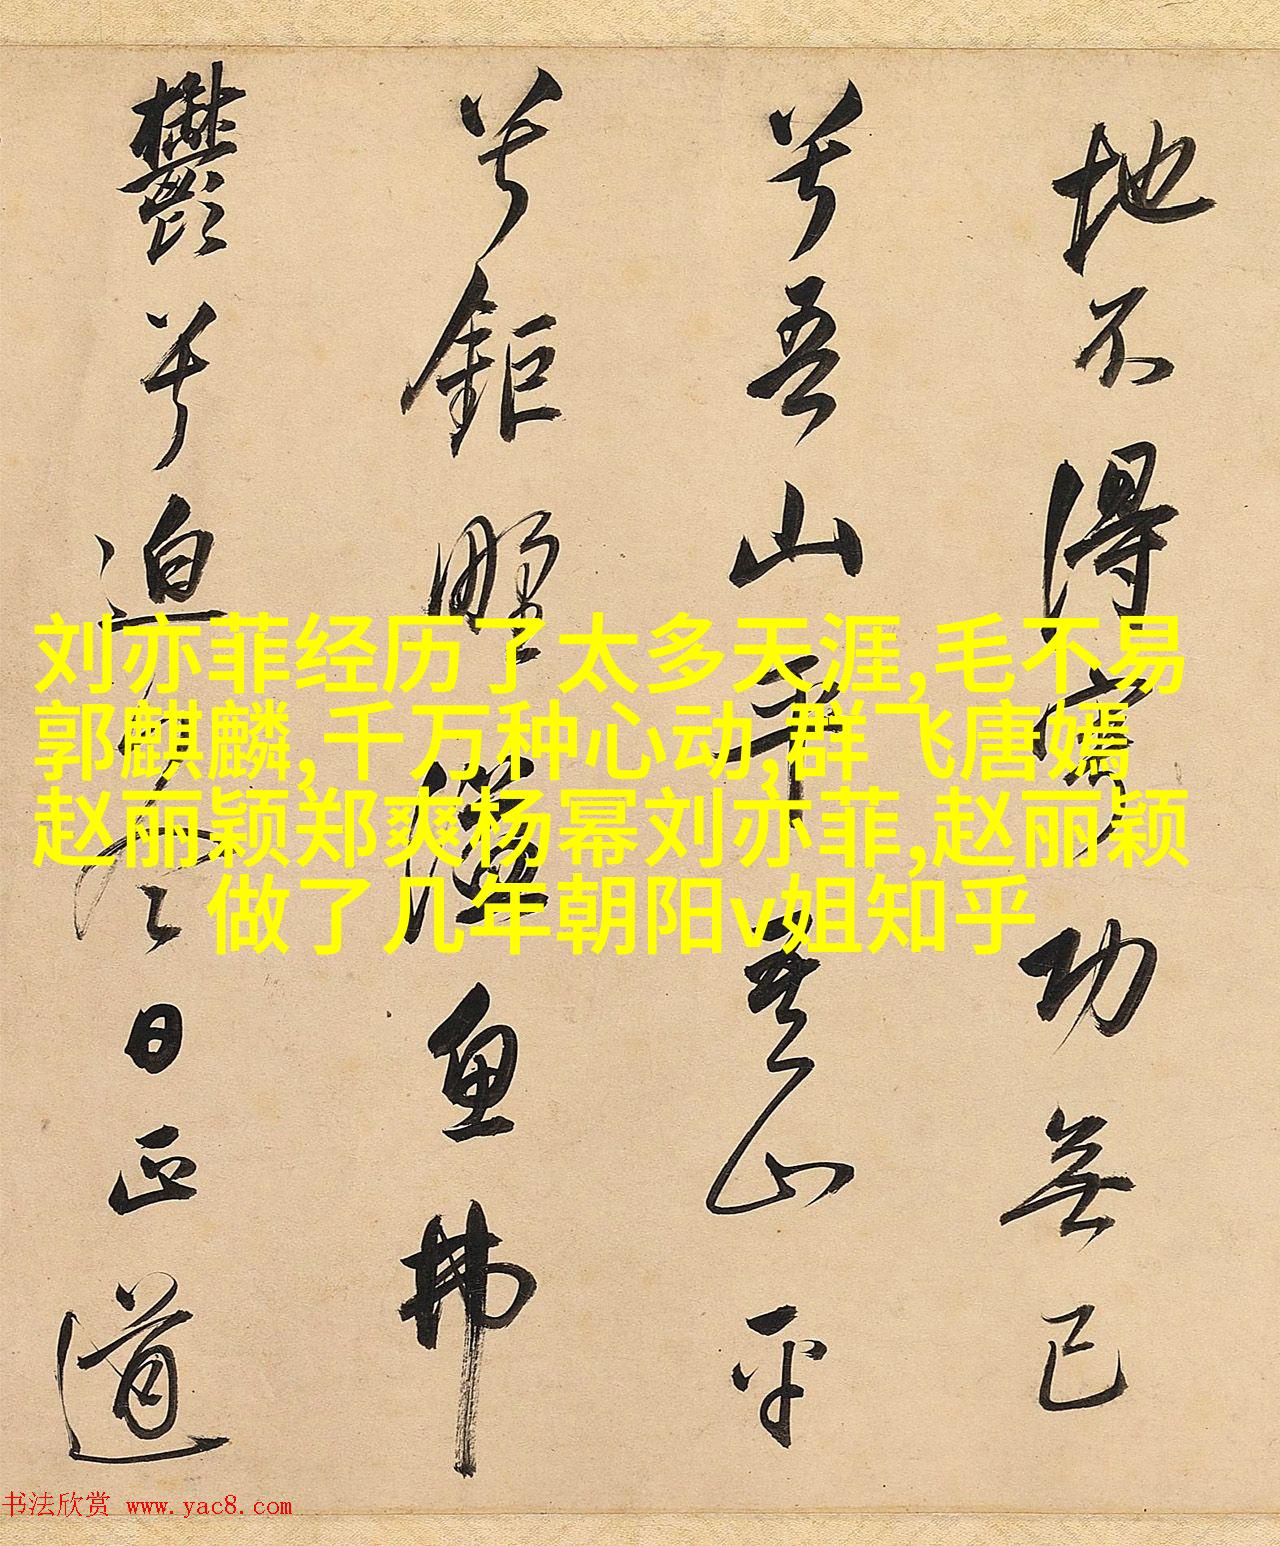 地不得寧功無已
兮吾山平吾山平
兮鉅野溢魚拂
鬱兮迫冬日正道
刘亦菲经历了太多天涯,毛不易
郭麒麟,千万种心动,群飞唐嫣
赵丽颖郑爽杨幂刘亦菲,赵丽颖
做了几年朝阳v姐知乎
书法欣赏 www.yac8.com